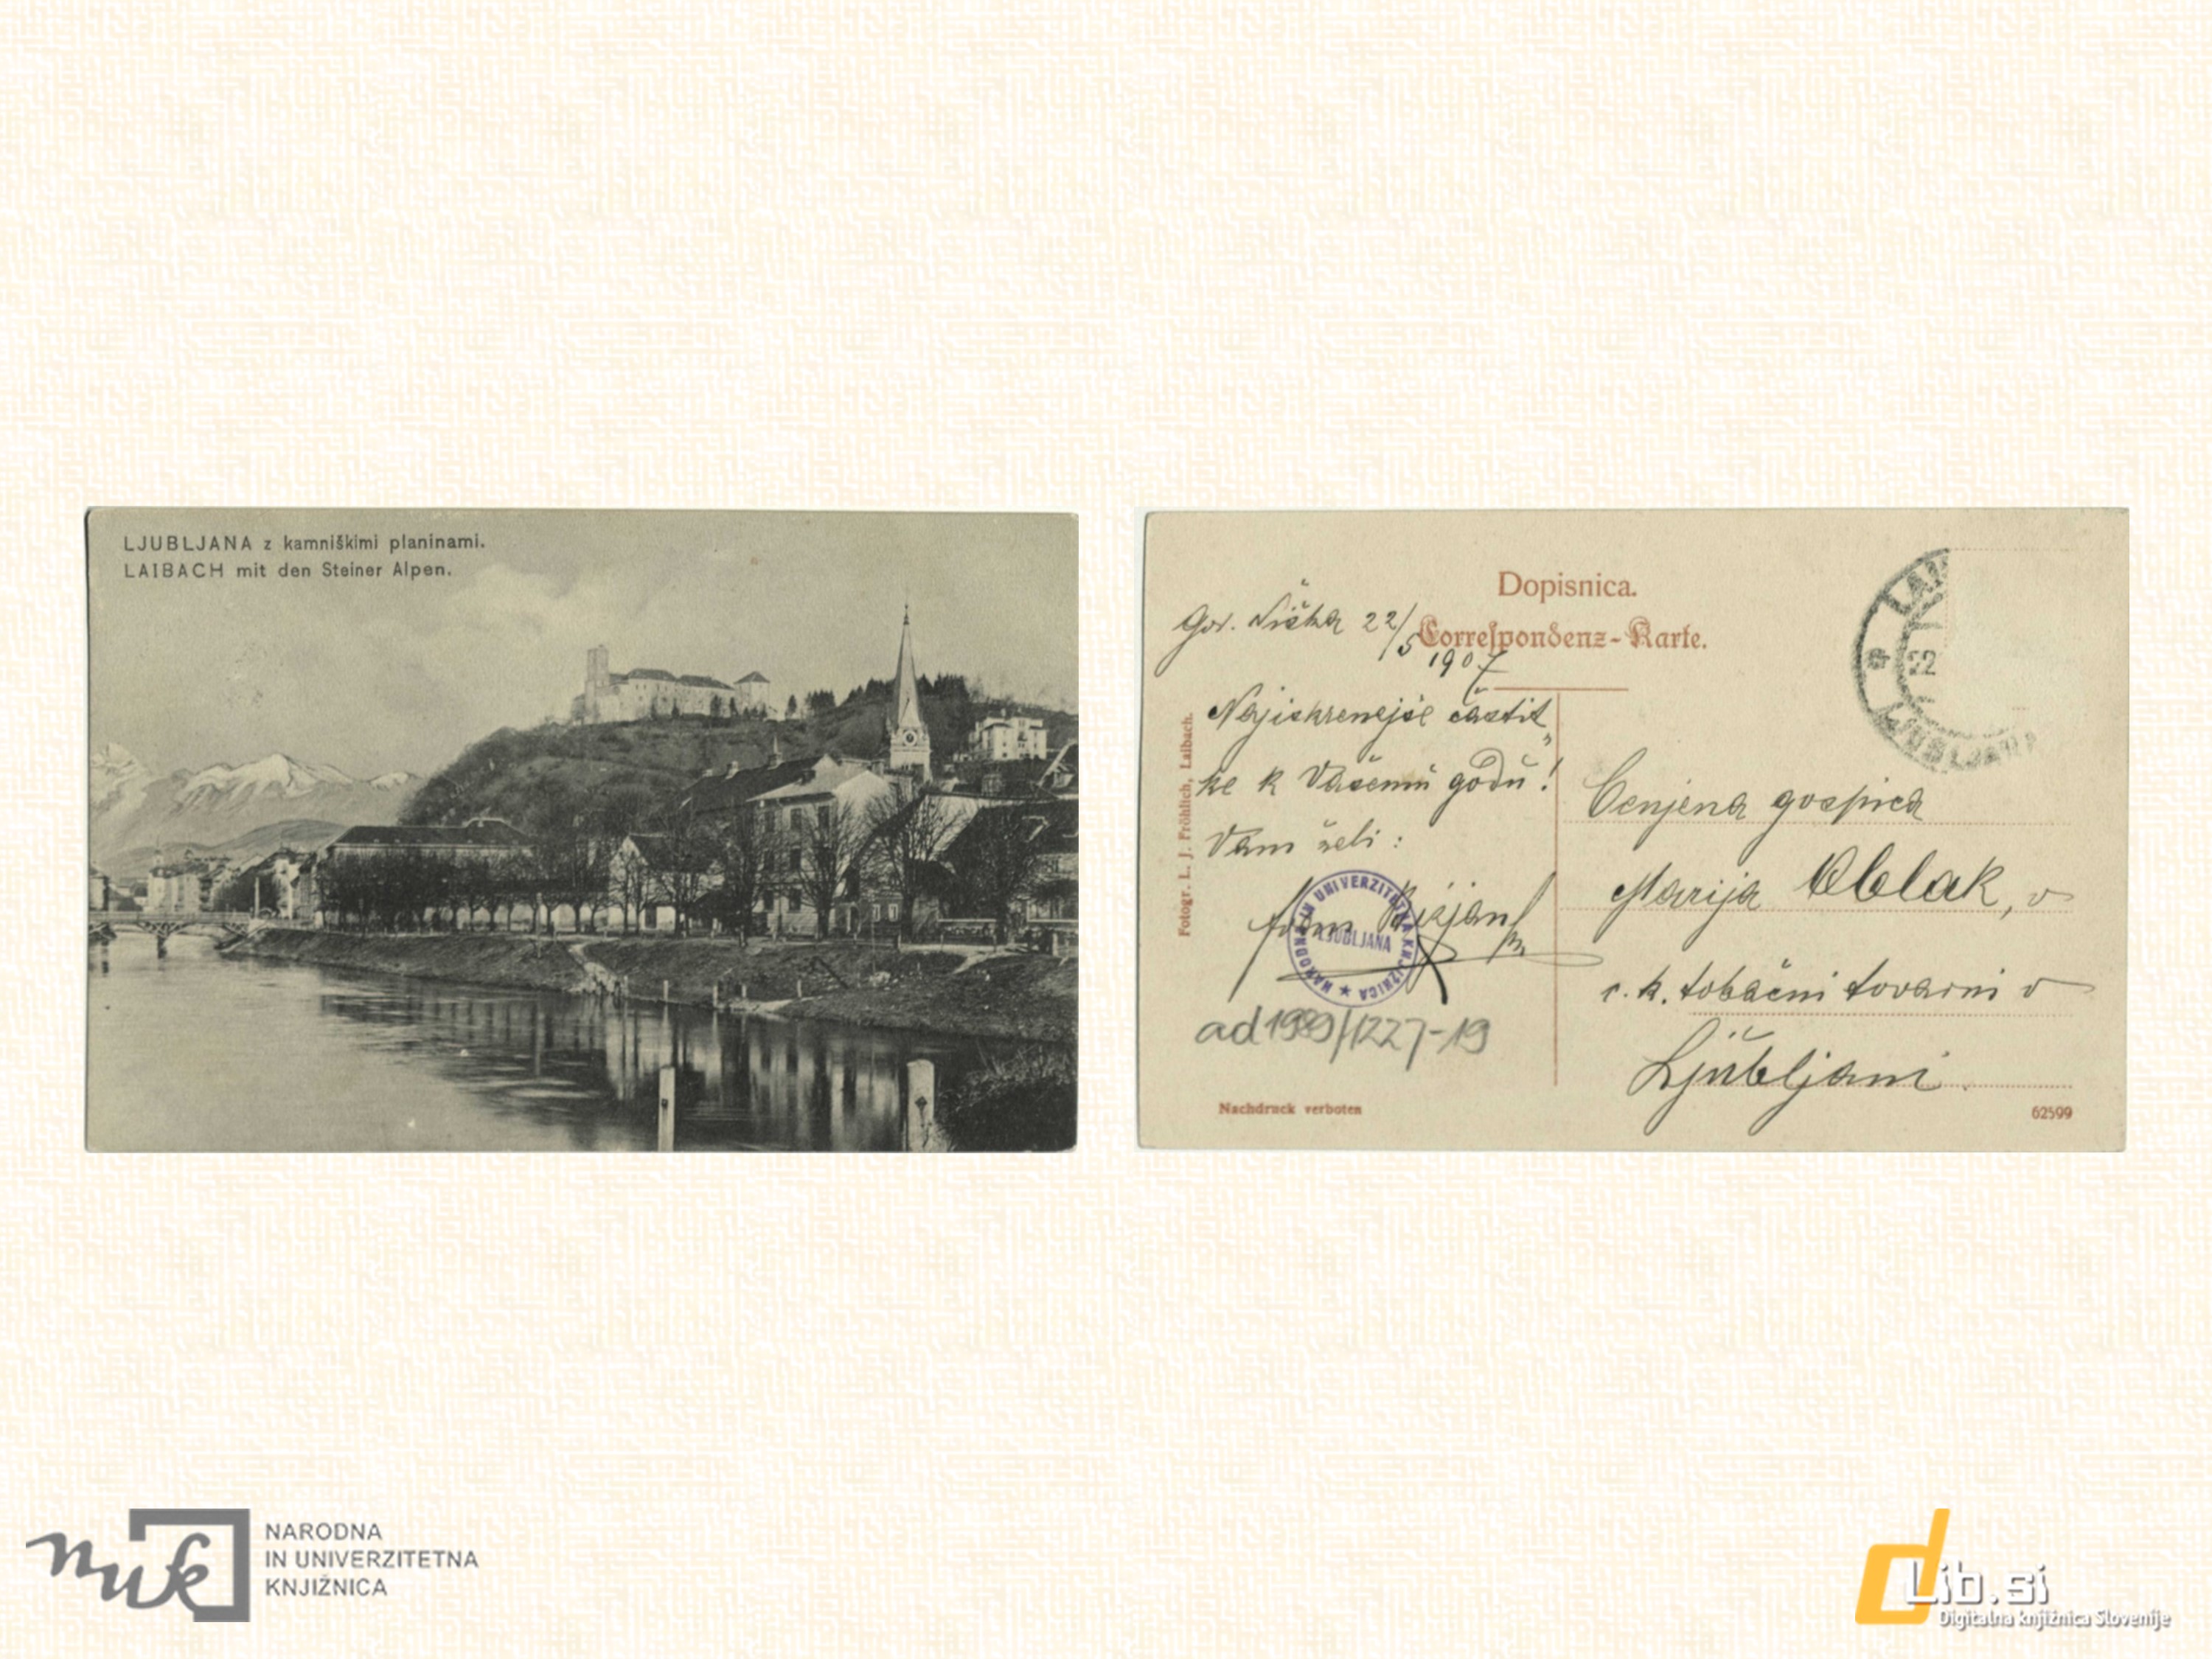 LJUBLJANA z kamniškimi planinami.
LAIBACH mit den Steiner Alpen.
Dopisnica.
Correspondenz-Karte.
Gor. Šiška 22/5
1907
Najiskrenejše častit„
ke k Vašemu godu!
Vam želi:
Fotogr. L. J. Fröhlich, Laibach.
NARODNA IN UNIVERZITETNA KNJIŽNICA
LJUBLJANA
ad 1989/1227-19
Nachdruck verboten
22
LJUBLJANA
Cenjena gospica
Marija Oblak, v
c. k. tobačni tovarni v
Ljubljani.
62599
nuk
NARODNA
IN UNIVERZITETNA
KNJIŽNICA
dLib.si
Digitalna knjižnica Slovenije